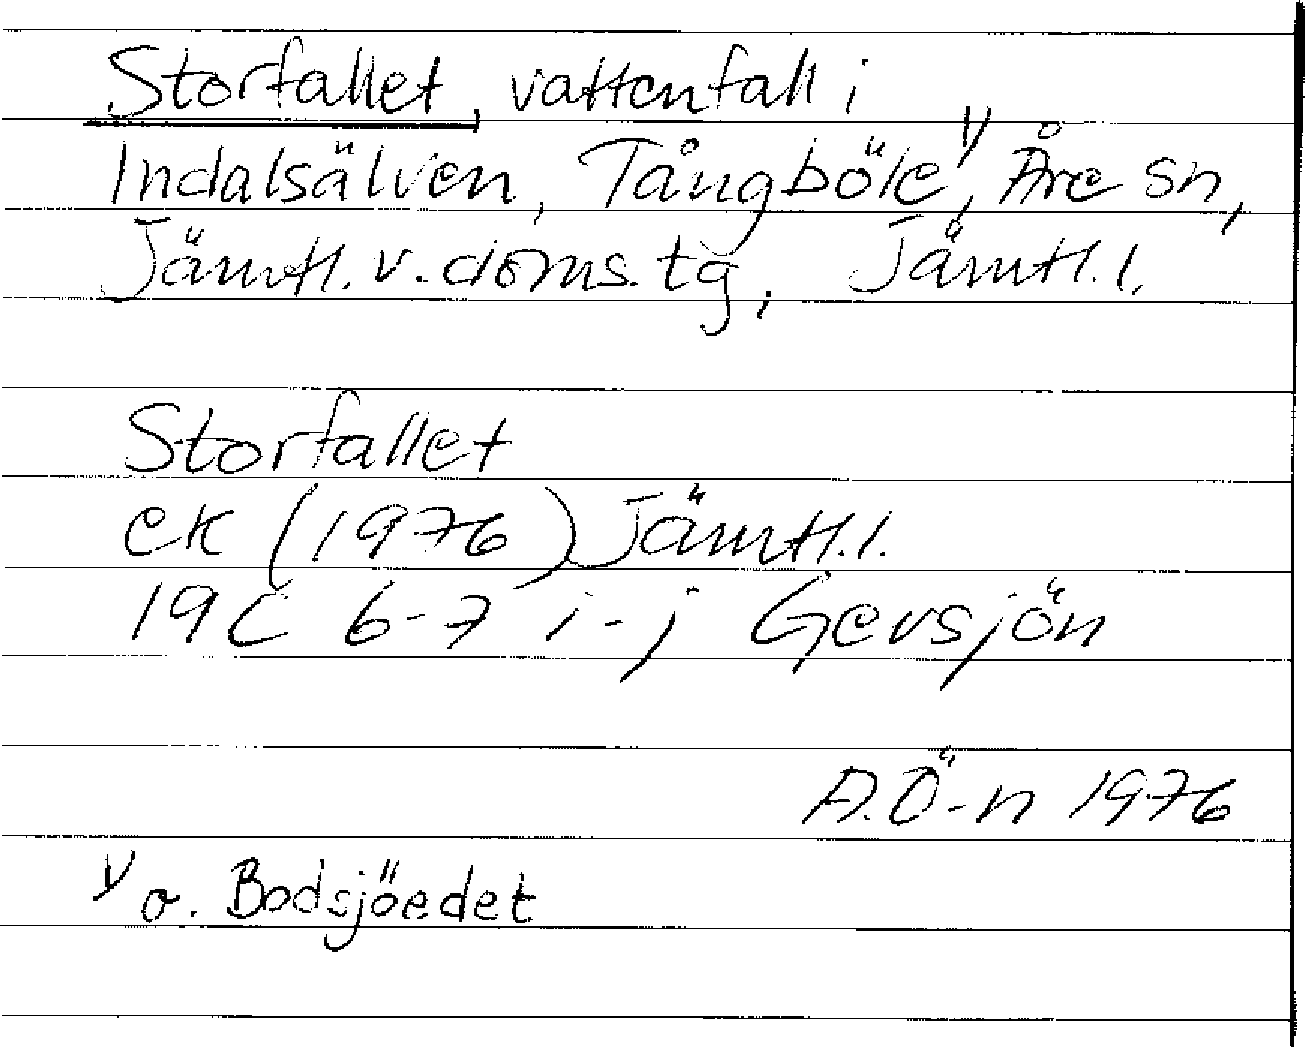 Storfallet, vattenfall i
Indalsälven, Tångböle 1), Åre sn,
Jämtl. v. doms. tg, Jämtl. l.
Storfallet
ek (1976) Jämtl. l.
19C 6-7 i-j Gevsjön
A.Ö-n 1976
1) o. Bodsjöedet